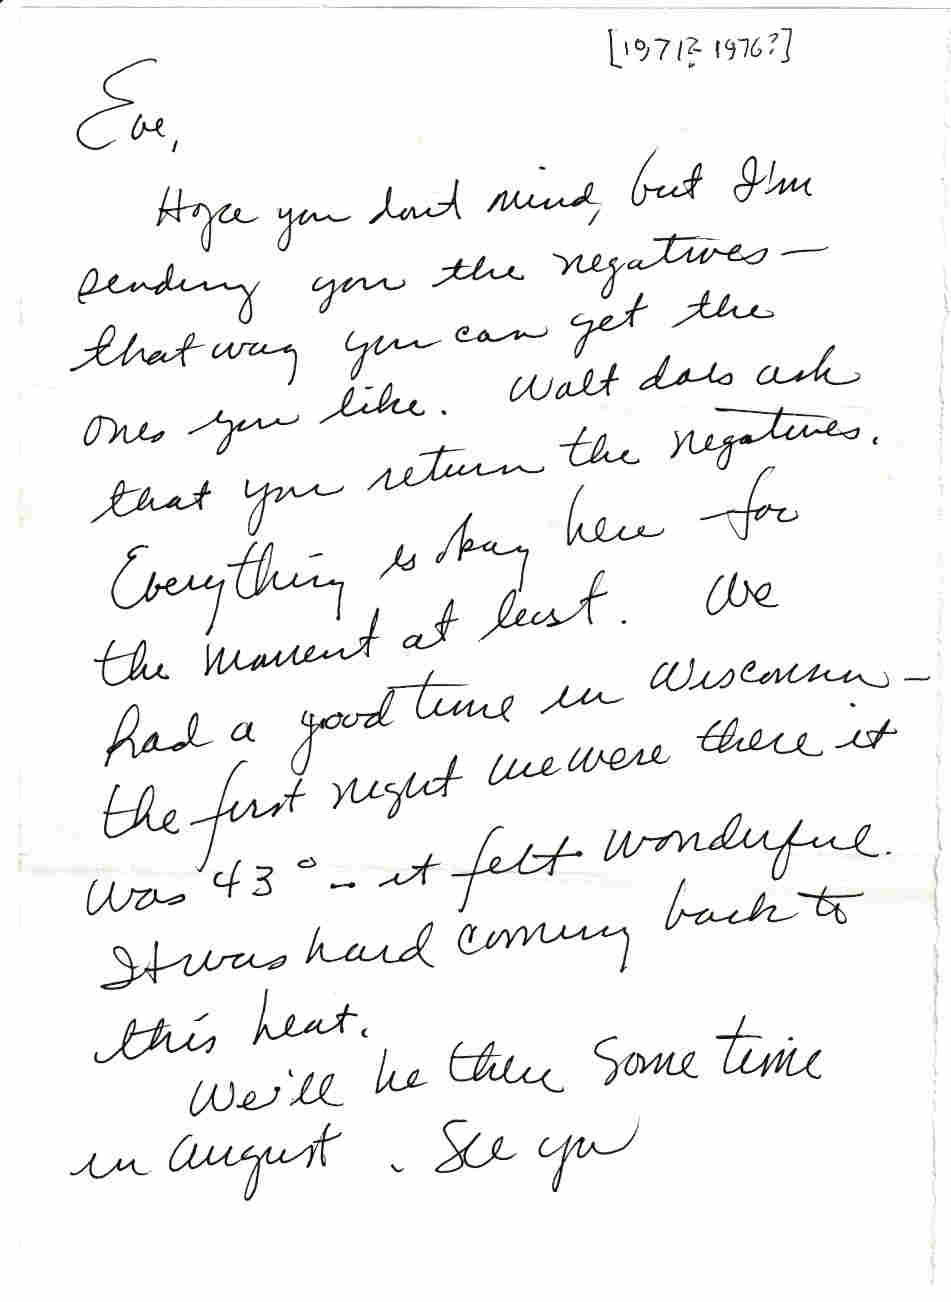 [1971?-1976?]
Eve,
Hope you dont mind, but I'm
sending you the negatives –
that way you can get the
ones you like. Walt does ask
that you return the negatives.
Everything is okay here for
the moment at least. We
had a good time in Wisconsin –
the first night we were there it
was 43° – it felt wonderful.
It was hard coming back to
this heat.
We'll be there some time
in August. See you